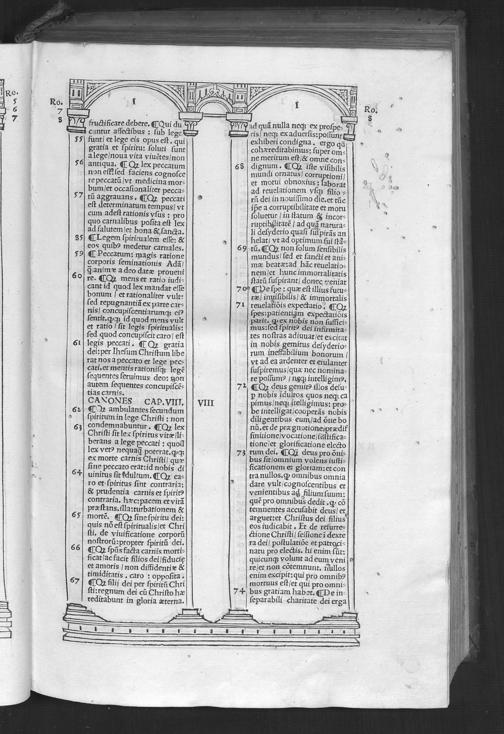 Ro.
7
8
fructificare debere. ¶Qui du
cuntur affectibus: sub lege
55 sunt/ et lege eis opus est. qui
gratia et spiritu: soluti sunt
a lege/noua vita viuẽtes/non
56 antiqua. ¶Qꝫ lex peccatum
non est/sed faciens cognosce
re peccatũ/vt medicina mor
bum/et occasionaliter pecca-
57 tũ aggrauans. ¶Qꝫ peccati
est determinatum tempus/ vt
cum adest rationis vsus: pro
quo carnalibus posita est lex
ad salutem/et bona & sancta.
58 ¶Legem spiritualem esse: &
eos quibꝰ medetur carnales.
59 ¶Peccatum: magis ratione
corporis seminationis Adã/
ꝗ̃ animæ a deo datæ proueni
60 re. ¶Qꝫ mens et ratio iudi-
cant id quod lex mandat esse
bonum/ et rationaliter vult:
sed repugnantiã ex parte car
nis/ concupiscentiarumqꝫ ei
sentit.
et ratio/ sit legis spiritualis:
sed quod concupiscit caro/est
61 legis peccati. ¶Qꝫ gratia
dei: per Ihesum Christum libe
rat nos a peccato et lege pec-
cati. et mentis rationisqꝫ legẽ
sequentes seruimus deo: non
autem sequentes concupiscẽ-
tias carnis.
CANONES CAP. VIII.
62 ¶Qꝫ ambulantes secundum
spiritum in lege Christi: non
63 condemnabuntur. ¶Qꝫ lex
Christi sit lex spiritus vitæ/li
berans a lege peccati: quod
lex vetꝰ nequaꝗ̃ poterat. qꝫ
ex morte carnis Christi/ quæ
sine peccato erat: id nobis di
64 uinitus sit ¶Qꝫ ca-
ro et spiritus sint contraria:
& prudentia carnis et spiritꝰ
contraria. hæc: pacem et vitã
præstans. illa: turbationem &
65 mortẽ. ¶Qꝫ sine spiritu dei:
quis nõ est spiritualis et Chri
sti. de viuificatione corporũ
nostrorũ: propter spiritũ dei.
66 ¶Qꝫ spũs facta carnis morti-
ficat/ac facit filios dei/fiduciæ
et amoris/ non diffidentiæ &
timiditatis. caro: opposita.
67 ¶Qꝫ filij dei per spiritũ Chri
sti: regnum dei cũ Christo hæ
reditabunt in gloria æterna.
VIII
Ro.
8
ad quã nulla neqꝫ ex prospe-
ris/ neqꝫ ex aduersis: possunt
exhiberi condigna. ergo qꝫ
cohæreditabimus: super om-
ne meritum est/& omne con-
68 dignum. ¶Qꝫ iste visibilis
mundi ornatus/ corruptioni/
et motui obnoxius: laborat
ad reuelationem vsqꝫ filio-
rũ dei in nouissimo die. et tũc
ipse a corruptibilitate et motu
soluetur/ in statum & incor-
ruptibilitatẽ/ ad quã natura-
li desyderio quasi suspirãs an
helat/ vt ad optimum sui stã-
69 tũ. ¶Qꝫ non solum sensibilis
mundus/ sed et sancti et ani-
mæ beatæ: ad hãc reuelatio-
nem/et hunc immortalitatis
statũ suspirant/ donec veniat
70 ¶De spe: quæ est illius futu-
ræ/ inuisibilis/ & immortalis
71 reuelatiõis expectatio. ¶Qꝫ
spes: patientiam expectatiõis
parit. qꝫ ex nobis non suffici-
mus: sed spiritꝰ dei infirmita-
tes nostras adiuuat/et excitat
in nobis gemitus desyderio-
rum ineffabilium bonorum/
vt ad ea ardenter et euulanter
suspiremus/ quæ nec nomina-
re possumꝰ/ neqꝫ intelligimꝰ.
72 ¶Qꝫ deus genitꝰ illos desu-
p nobis iñditos quos neqꝫ ca
pimus/ neqꝫ intelligimus: pro
be intelligat/ cooperãs nobis
diligentibus eum/ad õne bo
nũ. et de prædestinatione/prædif
finitiõe/vocatiõe/iustifica-
tiõe/et glorificatione electo
73 rum dei. ¶Qꝫ deus pro õni-
bus sit/omnium volens iusti-
ficationem et gloriam: et con
tra nullos. qꝫ omnibus omnia
dare vult/cognoscentibus et
venientibus ad filium suum:
quẽ pro omnibꝰ dedit. qꝫ cõ-
temnentes accusabit deus/et
arguet: et Christus dei filius
eos iudicabit. Et de resurre-
ctione Christi/ sessione ad dexte
ra dei/ postulatiõe et patroci-
natu pro electis. hi enim sũt:
quicunqꝫ volunt ad eum veni
re/et non cõtemnunt. nullos
enim excipit: qui pro omnibꝰ
mortuus est/et qui pro omni-
74 bus gratiam habet. ¶De in-
separabili charitate dei erga